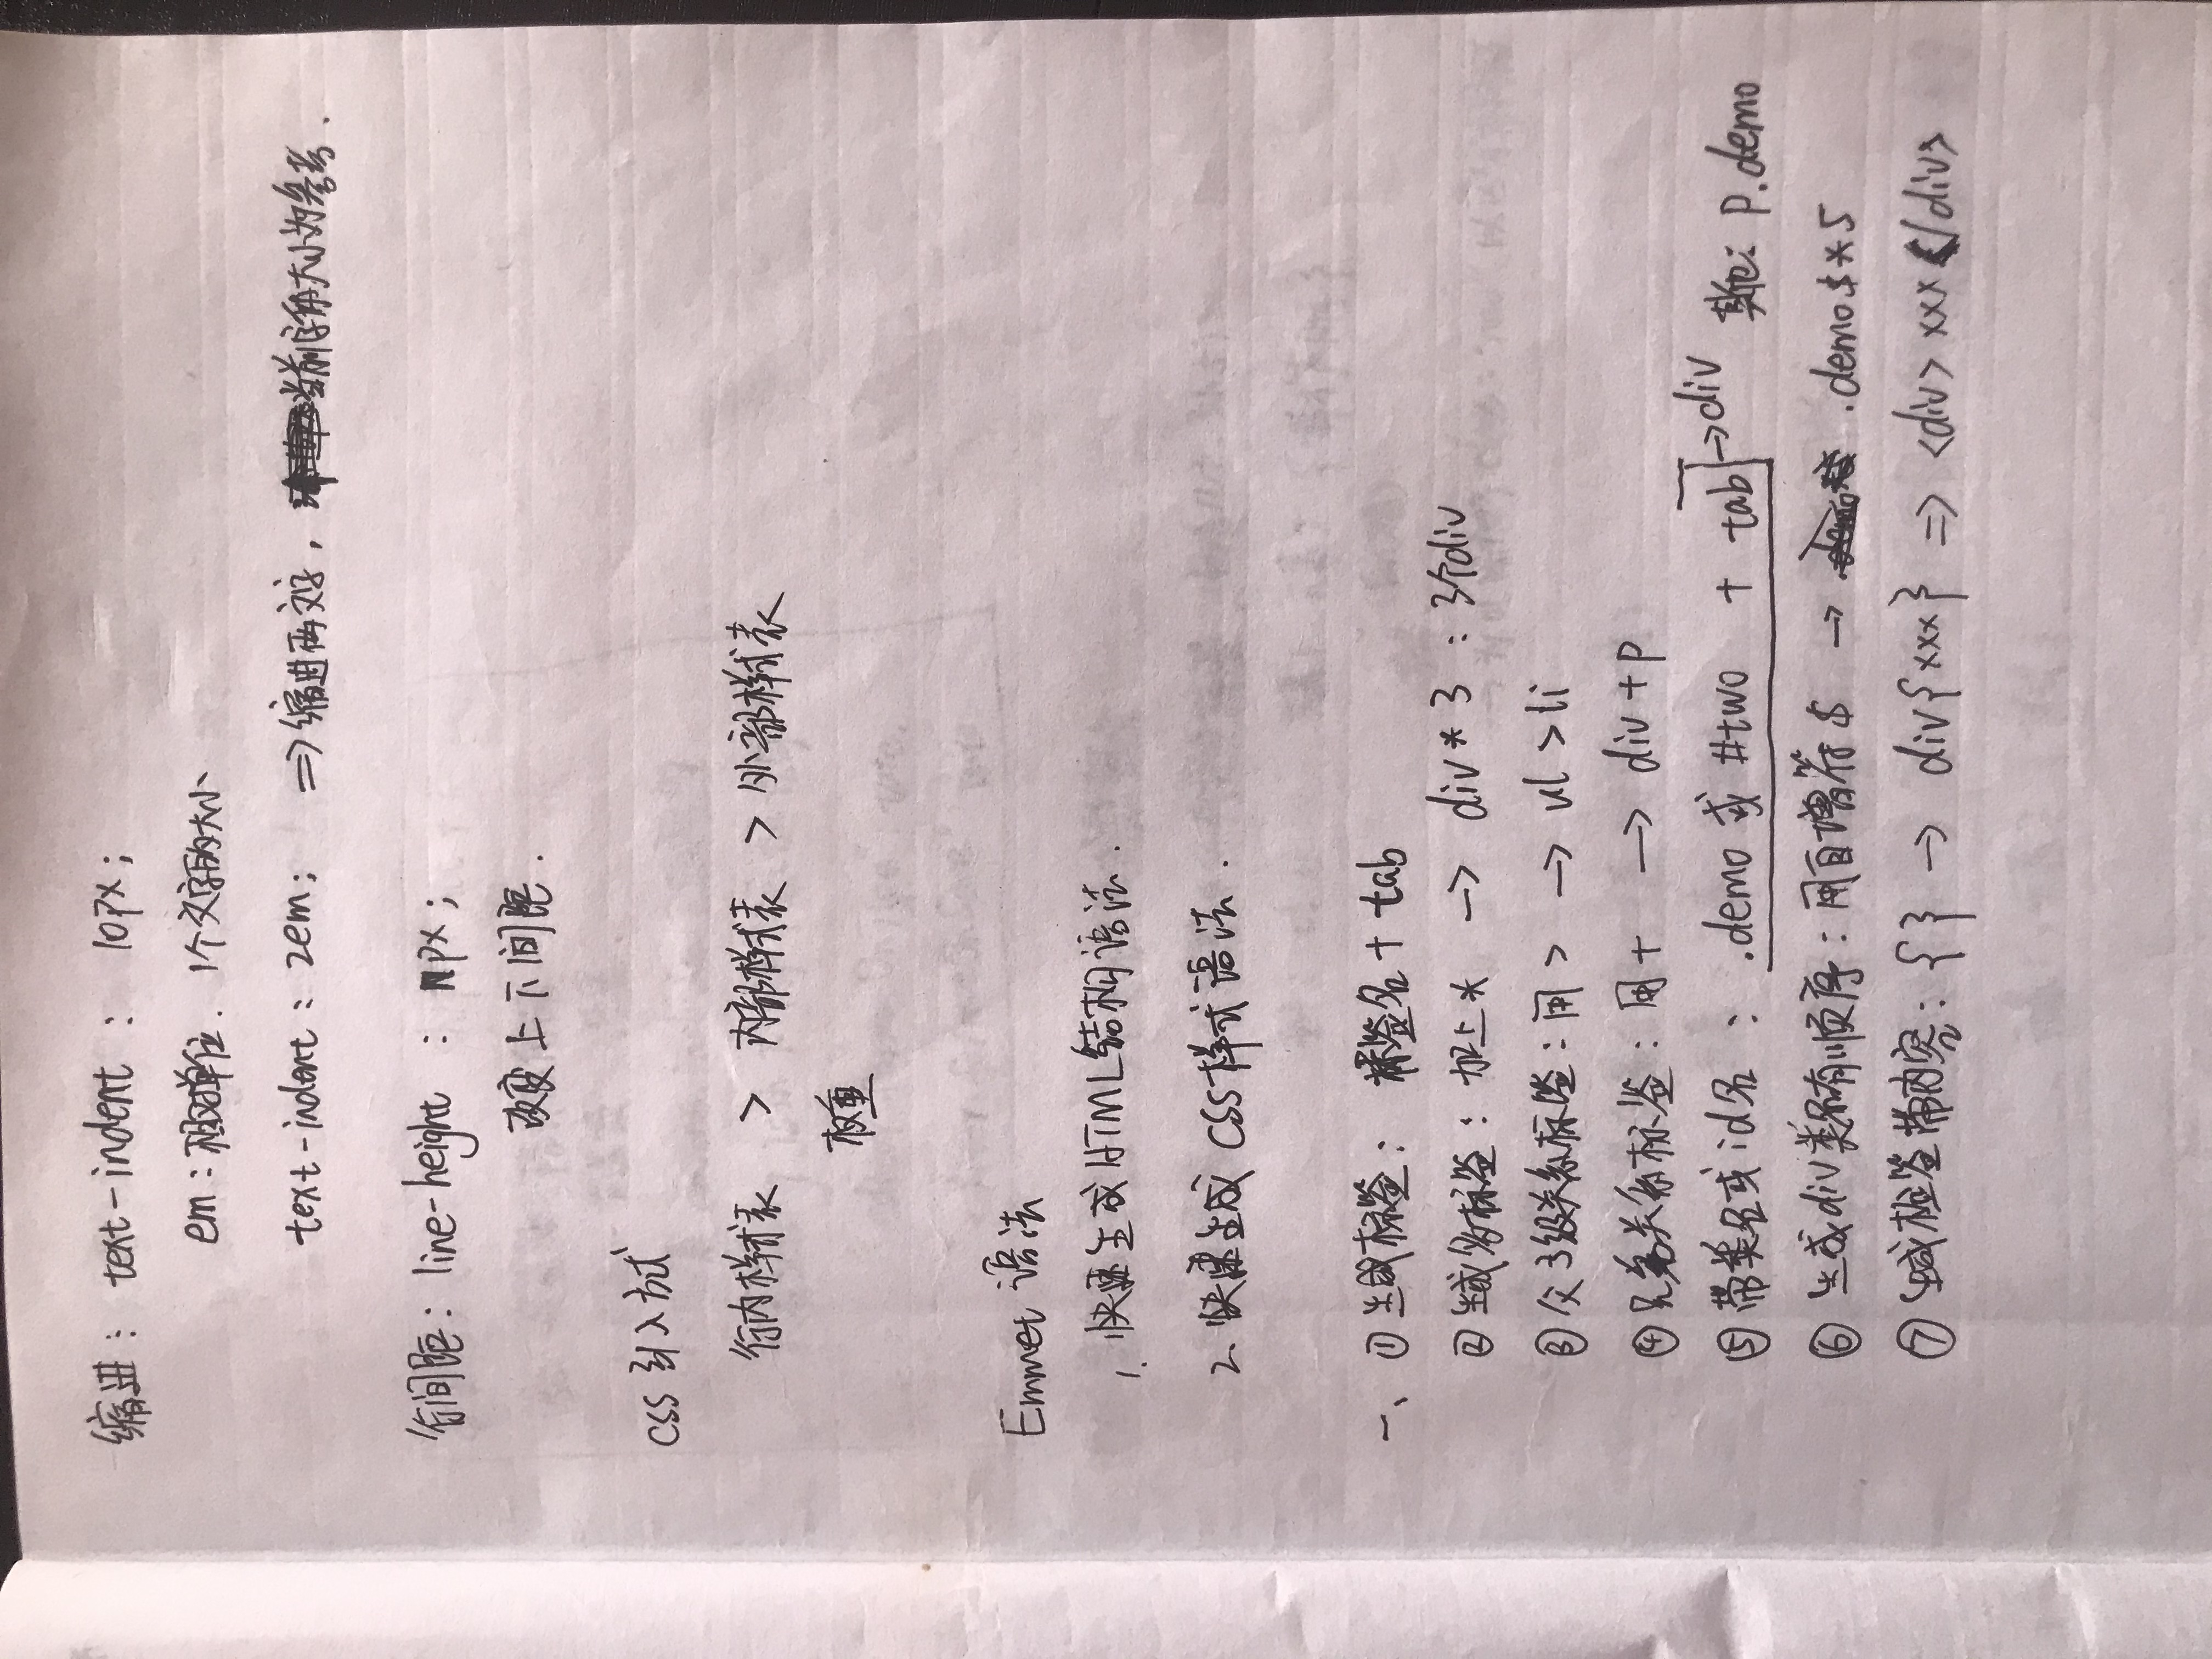 缩进： text-indent : 10px;
em：相对单位. 1个文字的大小
text-indent : 2em; => 缩进两文字, 当前字的大小为参考.
行间距：line-height : npx;
改变上下间距.
CSS 引入方式
行内样式表 > 内部样式表 > 外部样式表
权重
Emmet 语法
1. 快速生成HTML结构语法.
2. 快速生成 CSS样式语法.
一、①生成标签： 标签名 + tab
②生成多标签：加上* → div*3 : 3个div
③父子级关系标签：用> → ul>li
④兄弟关系标签：用+ → div+p
⑤带类名或id名 : .demo 或 #two + tab →div 其他: p.demo
⑥生成div类名有顺序：用自增符$ → .demo$*5
⑦生成标签带内容：{} → div{xxx} => <div> xxx </div>